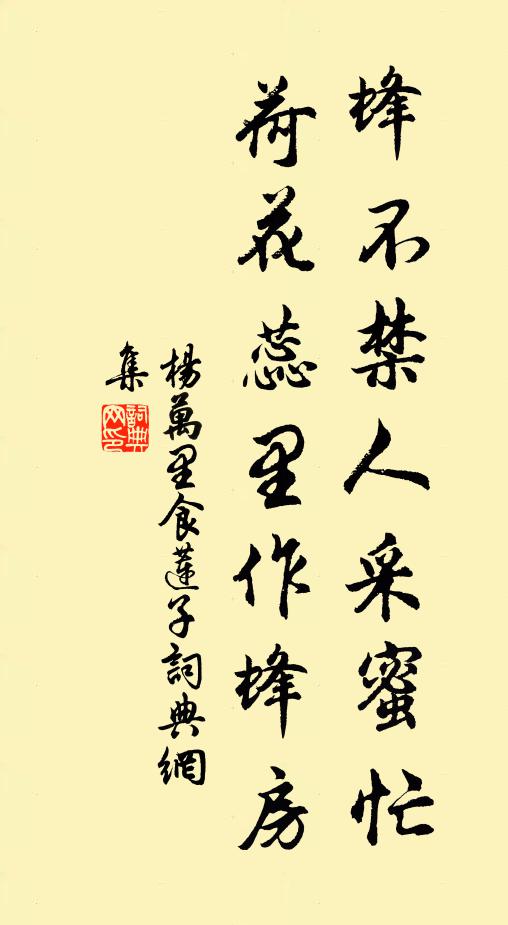 蜂不禁人采蜜忙
荷花蕊里作蜂房
楊萬里食蓮子詞典網
集
詞典网印